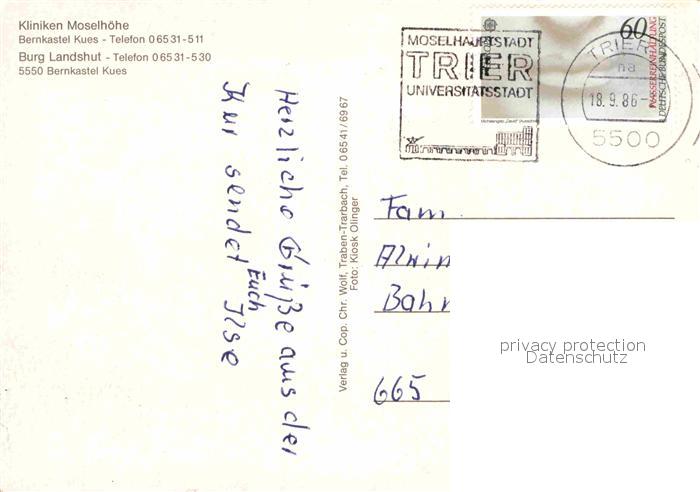 Kliniken Moselhöhe
Bernkastel Kues - Telefon 06531-511
Burg Landshut - Telefon 06531-530
5550 Bernkastel Kues
MOSELHAUPTSTADT
TRIER
UNIVERSITÄTSSTADT
60
WASSERREINHALTUNG
DEUTSCHE BUNDESPOST
TRIER
na
18.9.86-
5500
Herzliche Grüße aus der
Kur sendet Euch Ilse
Verlag u. Cop. Chr. Wolf, Traben-Trarbach, Tel. 06541/6967
Foto: Kiosk Olinger
Fam.
Alwin
Bahr
665
privacy protection
Datenschutz